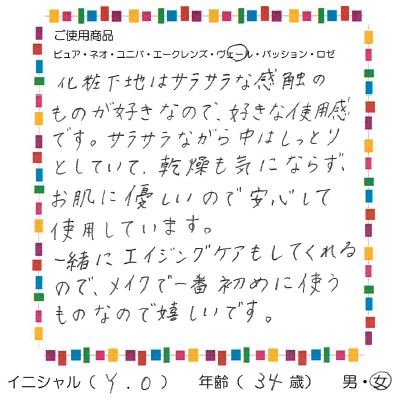 ご使用商品
ピュア・ネオ・ユニバ・エークレンズ・ヴェール・パッション・ロゼ
化粧下地はサラサラな感触の
ものが好きなので、好きな使用感
です。サラサラながら中はしっとり
としていて、乾燥も気にならず、
お肌に優しいので安心して
使用しています。
一緒にエイジングケアもしてくれる
ので、メイクで一番初めに使う
ものなので嬉しいです。
イニシャル（Y.O） 年齢（34歳） 男・女